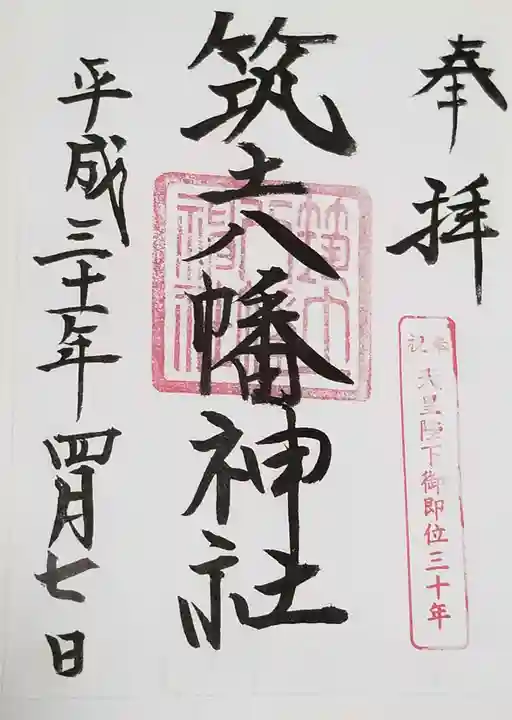 奉拝
奉祝
天皇陛下御即位三十年
筑土八幡神社
平成三十一年四月七日